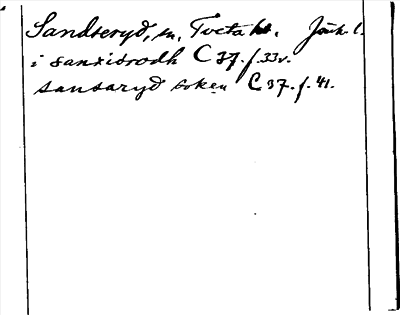 Sandseryd, sn. Tveta hd. Jönk. l.
i sanxisrodh C 37. f. 33v.
sansaryd soken C 37. f. 41.